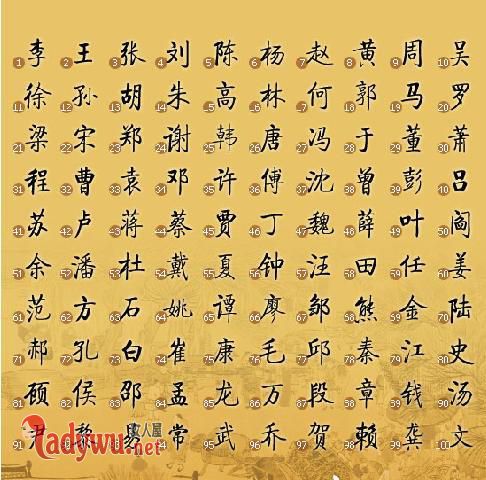 1 李 2 王 3 张 4 刘 5 陈 6 杨 7 赵 8 黄 9 周 10 吴
11 徐 12 孙 13 胡 14 朱 15 高 16 林 17 何 18 郭 19 马 20 罗
21 梁 22 宋 23 郑 24 谢 25 韩 26 唐 27 冯 28 于 29 董 30 萧
31 程 32 曹 33 袁 34 邓 35 许 36 傅 37 沈 38 曾 39 彭 40 吕
41 苏 42 卢 43 蒋 44 蔡 45 贾 46 丁 47 魏 48 薛 49 叶 50 阎
51 余 52 潘 53 杜 54 戴 55 夏 56 钟 57 汪 58 田 59 任 60 姜
61 范 62 方 63 石 64 姚 65 谭 66 廖 67 邹 68 熊 69 金 70 陆
71 郝 72 孔 73 白 74 崔 75 康 76 毛 77 邱 78 秦 79 江 80 史
81 顾 82 侯 83 邵 84 孟 85 龙 86 万 87 段 88 章 89 钱 90 汤
91 尹 黎 易 常 95 武 96 乔 97 贺 98 赖 99 龚 100 文
Ladywu.net